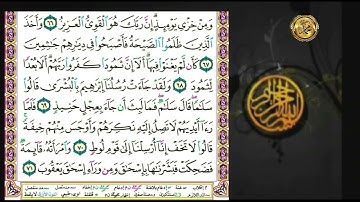 وَمِنْ خِزْىِ يَوْمِئِذٍ إِنَّ رَبَّكَ هُوَ ٱلْقَوِىُّ ٱلْعَزِيزُ ٦٦ وَأَخَذَ
ٱلَّذِينَ ظَلَمُوا۟ ٱلصَّيْحَةُ فَأَصْبَحُوا۟ فِى دِيَٰرِهِمْ جَٰثِمِينَ
٦٧ كَأَن لَّمْ يَغْنَوْا۟ فِيهَآ أَلَآ إِنَّ ثَمُودَا۟ كَفَرُوا۟ رَبَّهُمْ أَلَا بُعْدًا
لِّثَمُودَ ٦٨ وَلَقَدْ جَآءَتْ رُسُلُنَآ إِبْرَٰهِيمَ بِٱلْبُشْرَىٰ قَالُوا۟
سَلَٰمًا قَالَ سَلَٰمٌ فَمَا لَبِثَ أَن جَآءَ بِعِجْلٍ حَنِيذٍ ٦٩ فَلَمَّا
رَءَآ أَيْدِيَهُمْ لَا تَصِلُ إِلَيْهِ نَكِرَهُمْ وَأَوْجَسَ مِنْهُمْ خِيفَةً
قَالُوا۟ لَا تَخَفْ إِنَّآ أُرْسِلْنَآ إِلَىٰ قَوْمِ لُوطٍ ٧٠ وَٱمْرَأَتُهُۥ قَآئِمَةٌ
فَضَحِكَتْ فَبَشَّرْنَٰهَا بِإِسْحَٰقَ وَمِن وَرَآءِ إِسْحَٰقَ يَعْقُوبَ ٧١